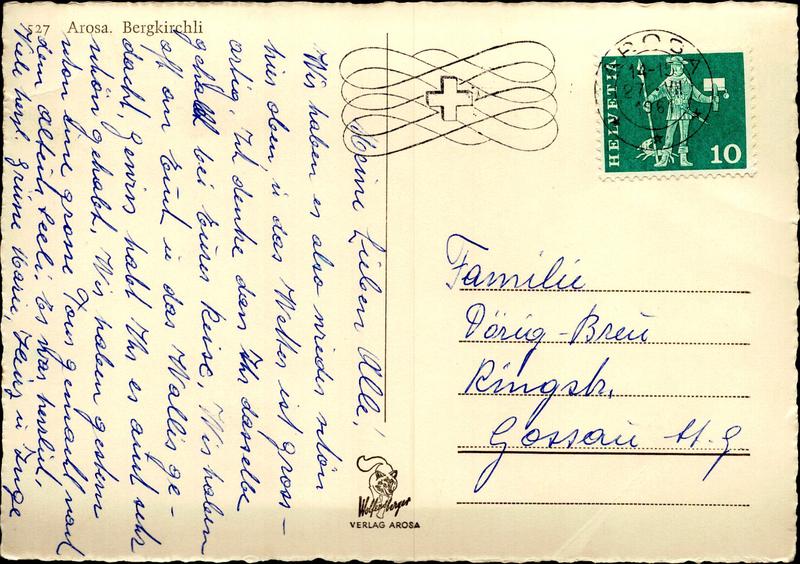 527 Arosa. Bergkirchli
Meine Lieben Alle!
Wir haben es also wieder schön
hier oben, u das Wetter ist gross-
artig. Ich denke dass Ihr dasselbe
gehabt bei Eurer Reise. Wir haben
oft an Euch u das Wallis ge-
dacht, gewiss habt Ihr es auch sehr
schön gehabt. Wir haben gestern
schon eine grosse Tour gemacht nach
dem Es war herrlich.
Viele herzl. Grüsse Marie, Heinz u Inge
AROSA
14-
27. VII
196
HELVETIA
10
Familie
Dörig-Breu
Ringstr.
Gossau St. G
Wolfensberger
VERLAG AROSA